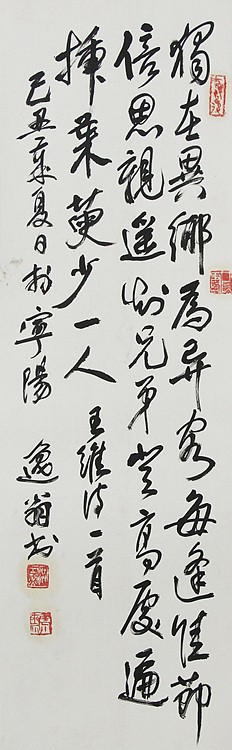 獨在異鄉為异客每逢佳節
倍思親遙知兄弟登高處遍
插茱萸少一人 王維詩一首
己丑年夏日於寧陽 逸翁書